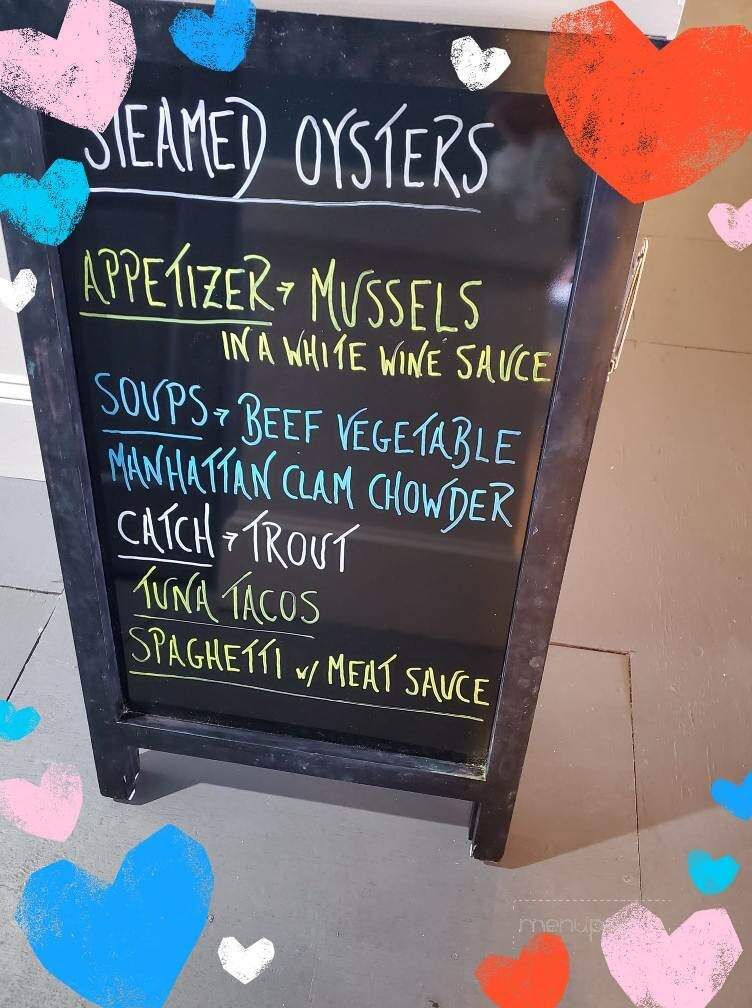 STEAMED OYSTERS
APPETIZER → MUSSELS
IN A WHITE WINE SAUCE
SOUPS → BEEF VEGETABLE
MANHATTAN CLAM CHOWDER
CATCH → TROUT
TUNA TACOS
SPAGHETTI w/ MEAT SAUCE